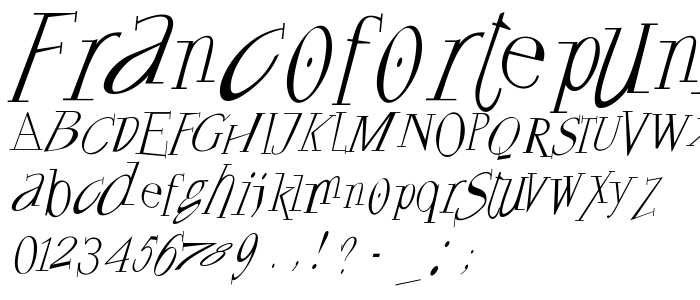 Francofortepun
ABCDEFGHIJKLMNOPQRSTUVWX
abcdefghijklmnopqrstuvwxyz
0123456789 .,!? - _ : ;